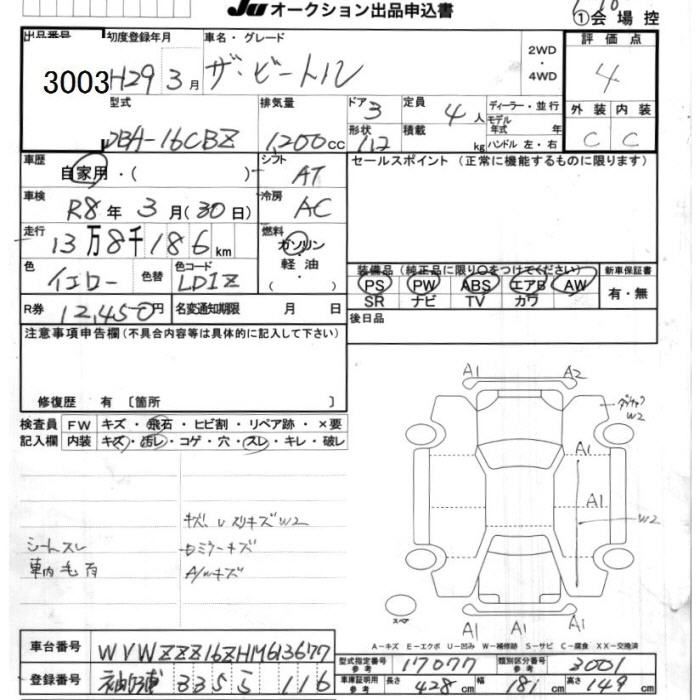 JU オークション出品申込書
①会場控
出品番号 初度登録年月 車名・グレード 2WD・4WD 評価点
3003 H29 3月 ザ・ビートル 4
型式 排気量 ドア 定員 ディーラー・並行 外装 内装
DBA-16CBZ 1200cc 3 4人 モデル年式 年
形状 積載 kg ハンドル 左・右 C C
車歴 自家用・( ) シフト AT セールスポイント (正常に機能するものに限ります)
車検 R8年 3月(30日) 冷房 AC
走行 13万8千186km 燃料 ガソリン 軽油 ・( )
装備品 (純正品に限り○をつけてください) 新車保証書
色 イエロー 色替 色コード LD1Z PS PW ABS エアB AW 有・無
SR ナビ TV カワ
R券 12,450円 名変通知期限 月 日 後日品
注意事項申告欄 (不具合内容等は具体的に記入して下さい)
修復歴 有 〔箇所 〕
検査員 FW キズ・飛石・ヒビ割・リペア跡・×要
記入欄 内装 キズ・汚レ・コゲ・穴・スレ・キレ・破レ
A1 A2
W2
A1
A1
W2
キズ W2
シートスレ
A/Wキズ
スペア
A1 A1 A1
A-キズ E-エクボ U-凹み W-補修跡 S-サビ C-腐食 XX-交換済
車台番号 WVWZZZ16ZHM613677
型式指定番号 参考 17077 類別区分番号 参考 3001
登録番号 袖ヶ浦 335 116
車庫証明用 参考 長さ 428cm 幅 181cm 高さ 149cm